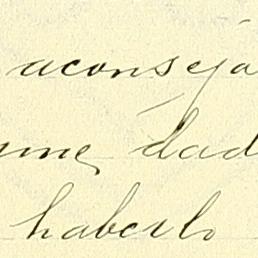 aconseja
me, dad
haberlo